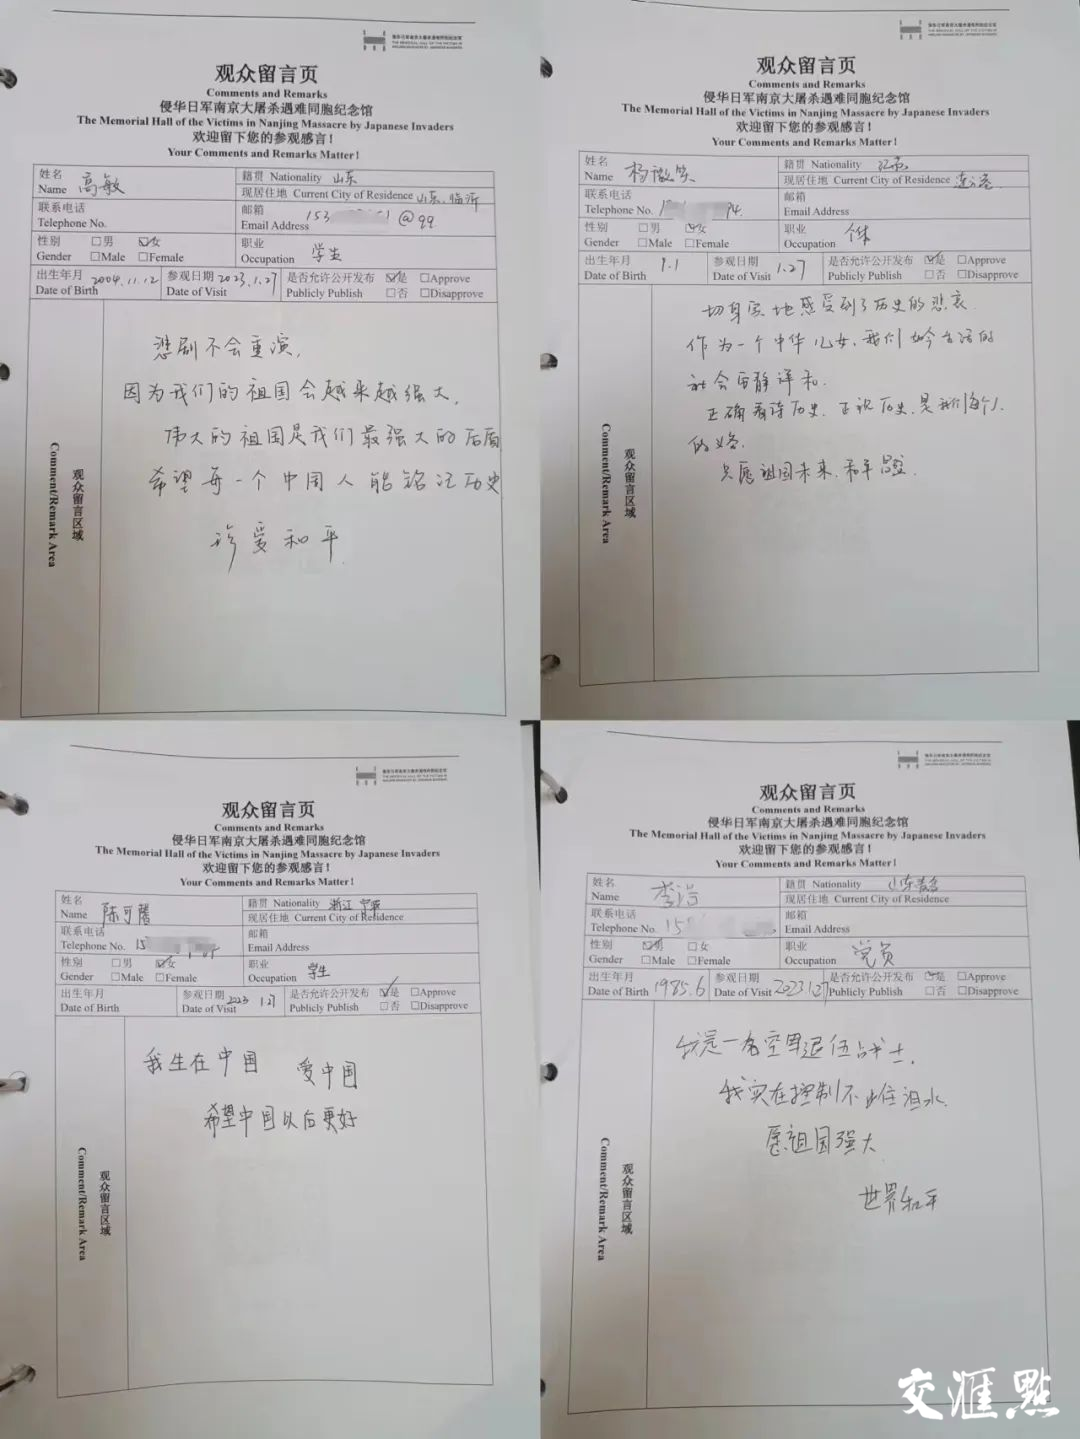 观众留言页
Comments and Remarks
侵华日军南京大屠杀遇难同胞纪念馆
The Memorial Hall of the Victims in Nanjing Massacre by Japanese Invaders
欢迎留下您的参观感言！
Your Comments and Remarks Matter！
姓名 Name 高敏
籍贯 Nationality 山东
现居住地 Current City of Residence 山东.临沂
联系电话 Telephone No.
邮箱 Email Address 153 1@qq
性别 Gender □男 ☑女 □Male □Female
职业 Occupation 学生
出生年月 Date of Birth 2004.11.12
参观日期 Date of Visit 2023.1.27
是否允许公开发布 Publicly Publish ☑是 □Approve □否 □Disapprove
观众留言区域
Comment/Remark Area
悲剧不会重演,
因为我们的祖国会越来越强大,
伟大的祖国是我们最强大的后盾
希望每一个中国人能铭记历史
珍爱和平.
侵华日军南京大屠杀遇难同胞纪念馆
THE MEMORIAL HALL OF THE VICTIMS IN
NANJING MASSACRE BY JAPANESE INVADERS
观众留言页
Comments and Remarks
侵华日军南京大屠杀遇难同胞纪念馆
The Memorial Hall of the Victims in Nanjing Massacre by Japanese Invaders
欢迎留下您的参观感言！
Your Comments and Remarks Matter！
姓名 Name 杨微笑
籍贯 Nationality 江苏
现居住地 Current City of Residence 连云港
联系电话 Telephone No. 94.
邮箱 Email Address
性别 Gender □男 ☑女 □Male □Female
职业 Occupation 个体
出生年月 Date of Birth 9.1
参观日期 Date of Visit 1.27
是否允许公开发布 Publicly Publish ☑是 □Approve □否 □Disapprove
观众留言区域
Comment/Remark Area
切身实地感受到了历史的悲哀.
作为一个中华儿女,我们如今生活的
社会 静祥和.
正确看待历史.正视历史.是我们每个人
的义务.
只愿祖国未来.和平昌盛.
观众留言页
Comments and Remarks
侵华日军南京大屠杀遇难同胞纪念馆
The Memorial Hall of the Victims in Nanjing Massacre by Japanese Invaders
欢迎留下您的参观感言！
Your Comments and Remarks Matter！
姓名 Name 陈可
籍贯 Nationality 浙江 宁波
现居住地 Current City of Residence
联系电话 Telephone No. 15
邮箱 Email Address
性别 Gender □男 ☑女 □Male □Female
职业 Occupation 学生
出生年月 Date of Birth
参观日期 Date of Visit 2023 1.27
是否允许公开发布 Publicly Publish ☑是 □Approve □否 □Disapprove
观众留言区域
Comment/Remark Area
我生在中国 爱中国
希望中国以后更好
观众留言页
Comments and Remarks
侵华日军南京大屠杀遇难同胞纪念馆
The Memorial Hall of the Victims in Nanjing Massacre by Japanese Invaders
欢迎留下您的参观感言！
Your Comments and Remarks Matter！
姓名 Name 李浩
籍贯 Nationality 山东青岛
现居住地 Current City of Residence
联系电话 Telephone No. 15
邮箱 Email Address
性别 Gender ☑男 □女 □Male □Female
职业 Occupation 党员
出生年月 Date of Birth 1985.6
参观日期 Date of Visit 2023.1.27
是否允许公开发布 Publicly Publish ☑是 □Approve □否 □Disapprove
观众留言区域
Comment/Remark Area
我是一名空军退伍战士.
我实在控制不住泪水.
愿祖国强大
世界和平
交汇點